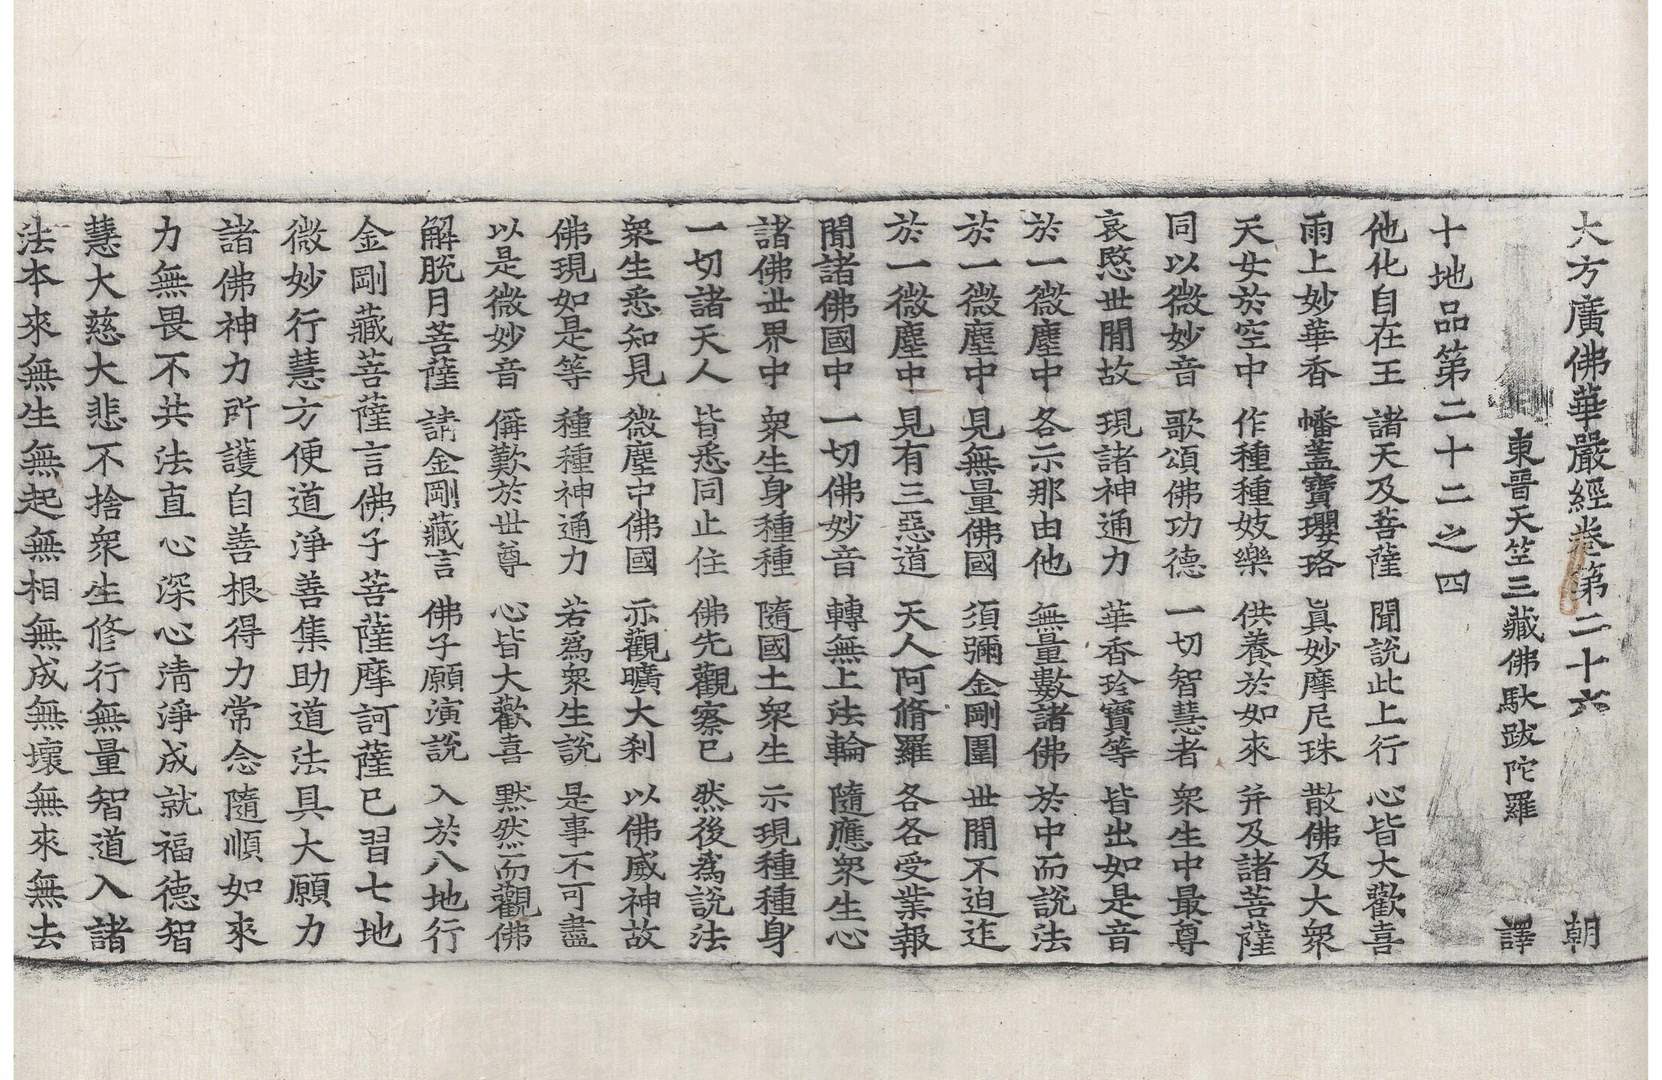 大方廣佛華嚴經卷第二十六 朝
東晉天竺三藏佛馱跋陀羅 譯
十地品第二十二之四
他化自在王 諸天及菩薩 聞說此上行 心皆大歡喜
雨上妙華香 幡蓋寶瓔珞 眞妙摩尼珠 散佛及大衆
天女於空中 作種種妓樂 供養於如來 并及諸菩薩
同以微妙音 歌頌佛功德 一切智慧者 衆生中最尊
哀愍世閒故 現諸神通力 華香珍寶等 皆出如是音
於一微塵中 各示那由他 無量數諸佛 於中而說法
於一微塵中 見無量佛國 須彌金剛圍 世閒不迫迮
於一微塵中 見有三惡道 天人阿脩羅 各各受業報
聞諸佛國中 一切佛妙音 轉無上法輪 隨應衆生心
諸佛世界中 衆生身種種 隨國土衆生 示現種種身
一切諸天人 皆悉同止住 佛先觀察已 然後爲說法
衆生悉知見 微塵中佛國 示觀曠大刹 以佛威神故
佛現如是等 種種神通力 若爲衆生說 是事不可盡
以是微妙音 偁歎於世尊 心皆大歡喜 默然而觀佛
解脫月菩薩 請金剛藏言 佛子願演說 入於八地行
金剛藏菩薩言佛子菩薩摩訶薩已習七地
微妙行慧方便道淨善集助道法具大願力
諸佛神力所護自善根得力常念隨順如來
力無畏不共法直心深心淸淨成就福德智
慧大慈大悲不捨衆生修行無量智道入諸
法本來無生無起無相無成無壞無來無去